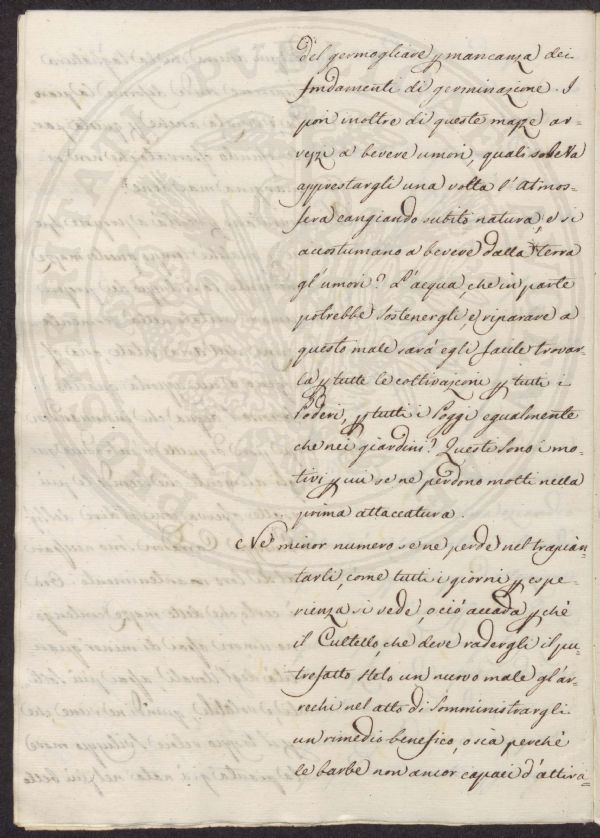 del germogliare p mancanza dei
fondamenti di germinazione. I
pori inoltre di queste mazze av=
vezzi a bevere umori, quali soleva
apprestargli una volta l'atmos=
fera cangiando subito natura, e si
accostumano a bevere dalla terra
gl'umori? L'acqua, che in parte
potrebbe sostenergli, e riparare a
questo male sarà egli facile trovar=
la p tutte le coltivazioni p tutti i
Poderi, p tutti i Poggi egualmente
che nei giardini? Questi sono i mo=
tivi p cui se ne perdono molti nella
prima attaccatura.
Nè minor numero se ne perde nel trapian=
tarli, come tutti i giorni p espe=
rienza si vede, o ciò accada p chè
il Cultello, che deve radergli il pu=
trefatto stelo un nuovo male gl'ar=
rechi nel atto di somministrargli
un rimedio benefico, o sia perchè
le barbe non ancor capaci d'attira=